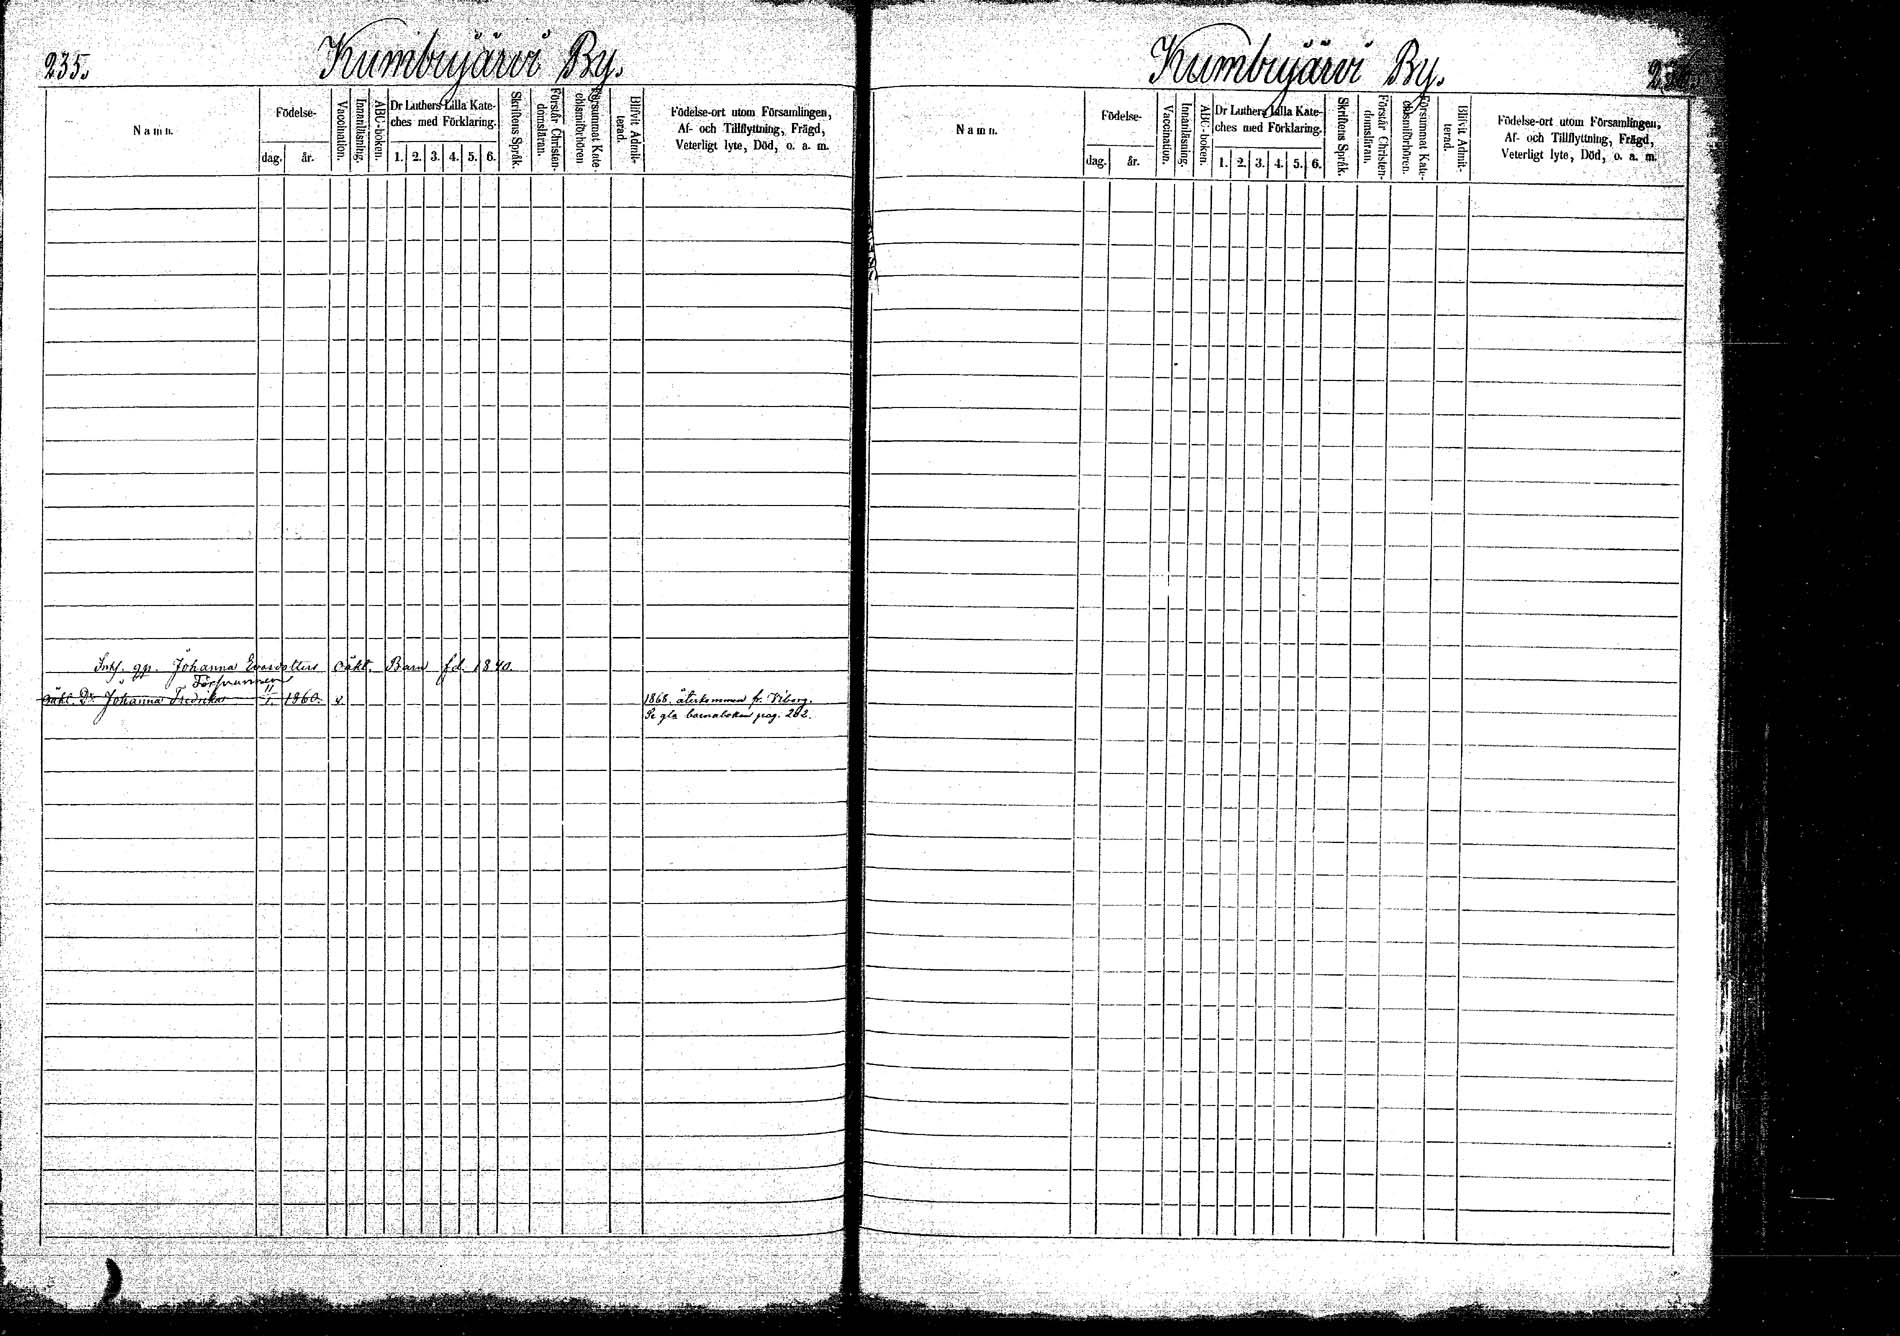 235.
Kumbujärvi By.
Namn.
Födelse-
dag.
år.
Vaccination.
Innanläsning.
ABC-boken.
Dr Luthers Lilla Kate-
ches med Förklaring.
1. 2. 3. 4. 5. 6.
Skriftens Språk.
Förstår Christen-
domsläran.
Försummat Kate-
chismiförhören
Blifvit Admit-
terad.
Födelse-ort utom Församlingen,
Af- och Tillflyttning, Frägd,
Veterligt lyte, Död, o. a. m.
Inh. Johanna Evasdotters oäkt. Barn fd. 1840.
Försvunnen
oäkt. Dr. Johanna Fredrika 11/1. 1860. v. 1868. återkommen fr. Viborg.
Se gla barnaboken pag. 262.
Kumbujärvi By.
Namn.
Födelse-
dag.
år.
Vaccination.
Innanläsning.
ABC-boken.
Dr Luthers Lilla Kate-
ches med Förklaring.
1. 2. 3. 4. 5. 6.
Skriftens Språk.
Förstår Christen-
domsläran.
Försummat Kate-
chismiförhören.
Blifvit Admit-
terad.
Födelse-ort utom Församlingen,
Af- och Tillflyttning, Frägd,
Veterligt lyte, Död, o. a. m.